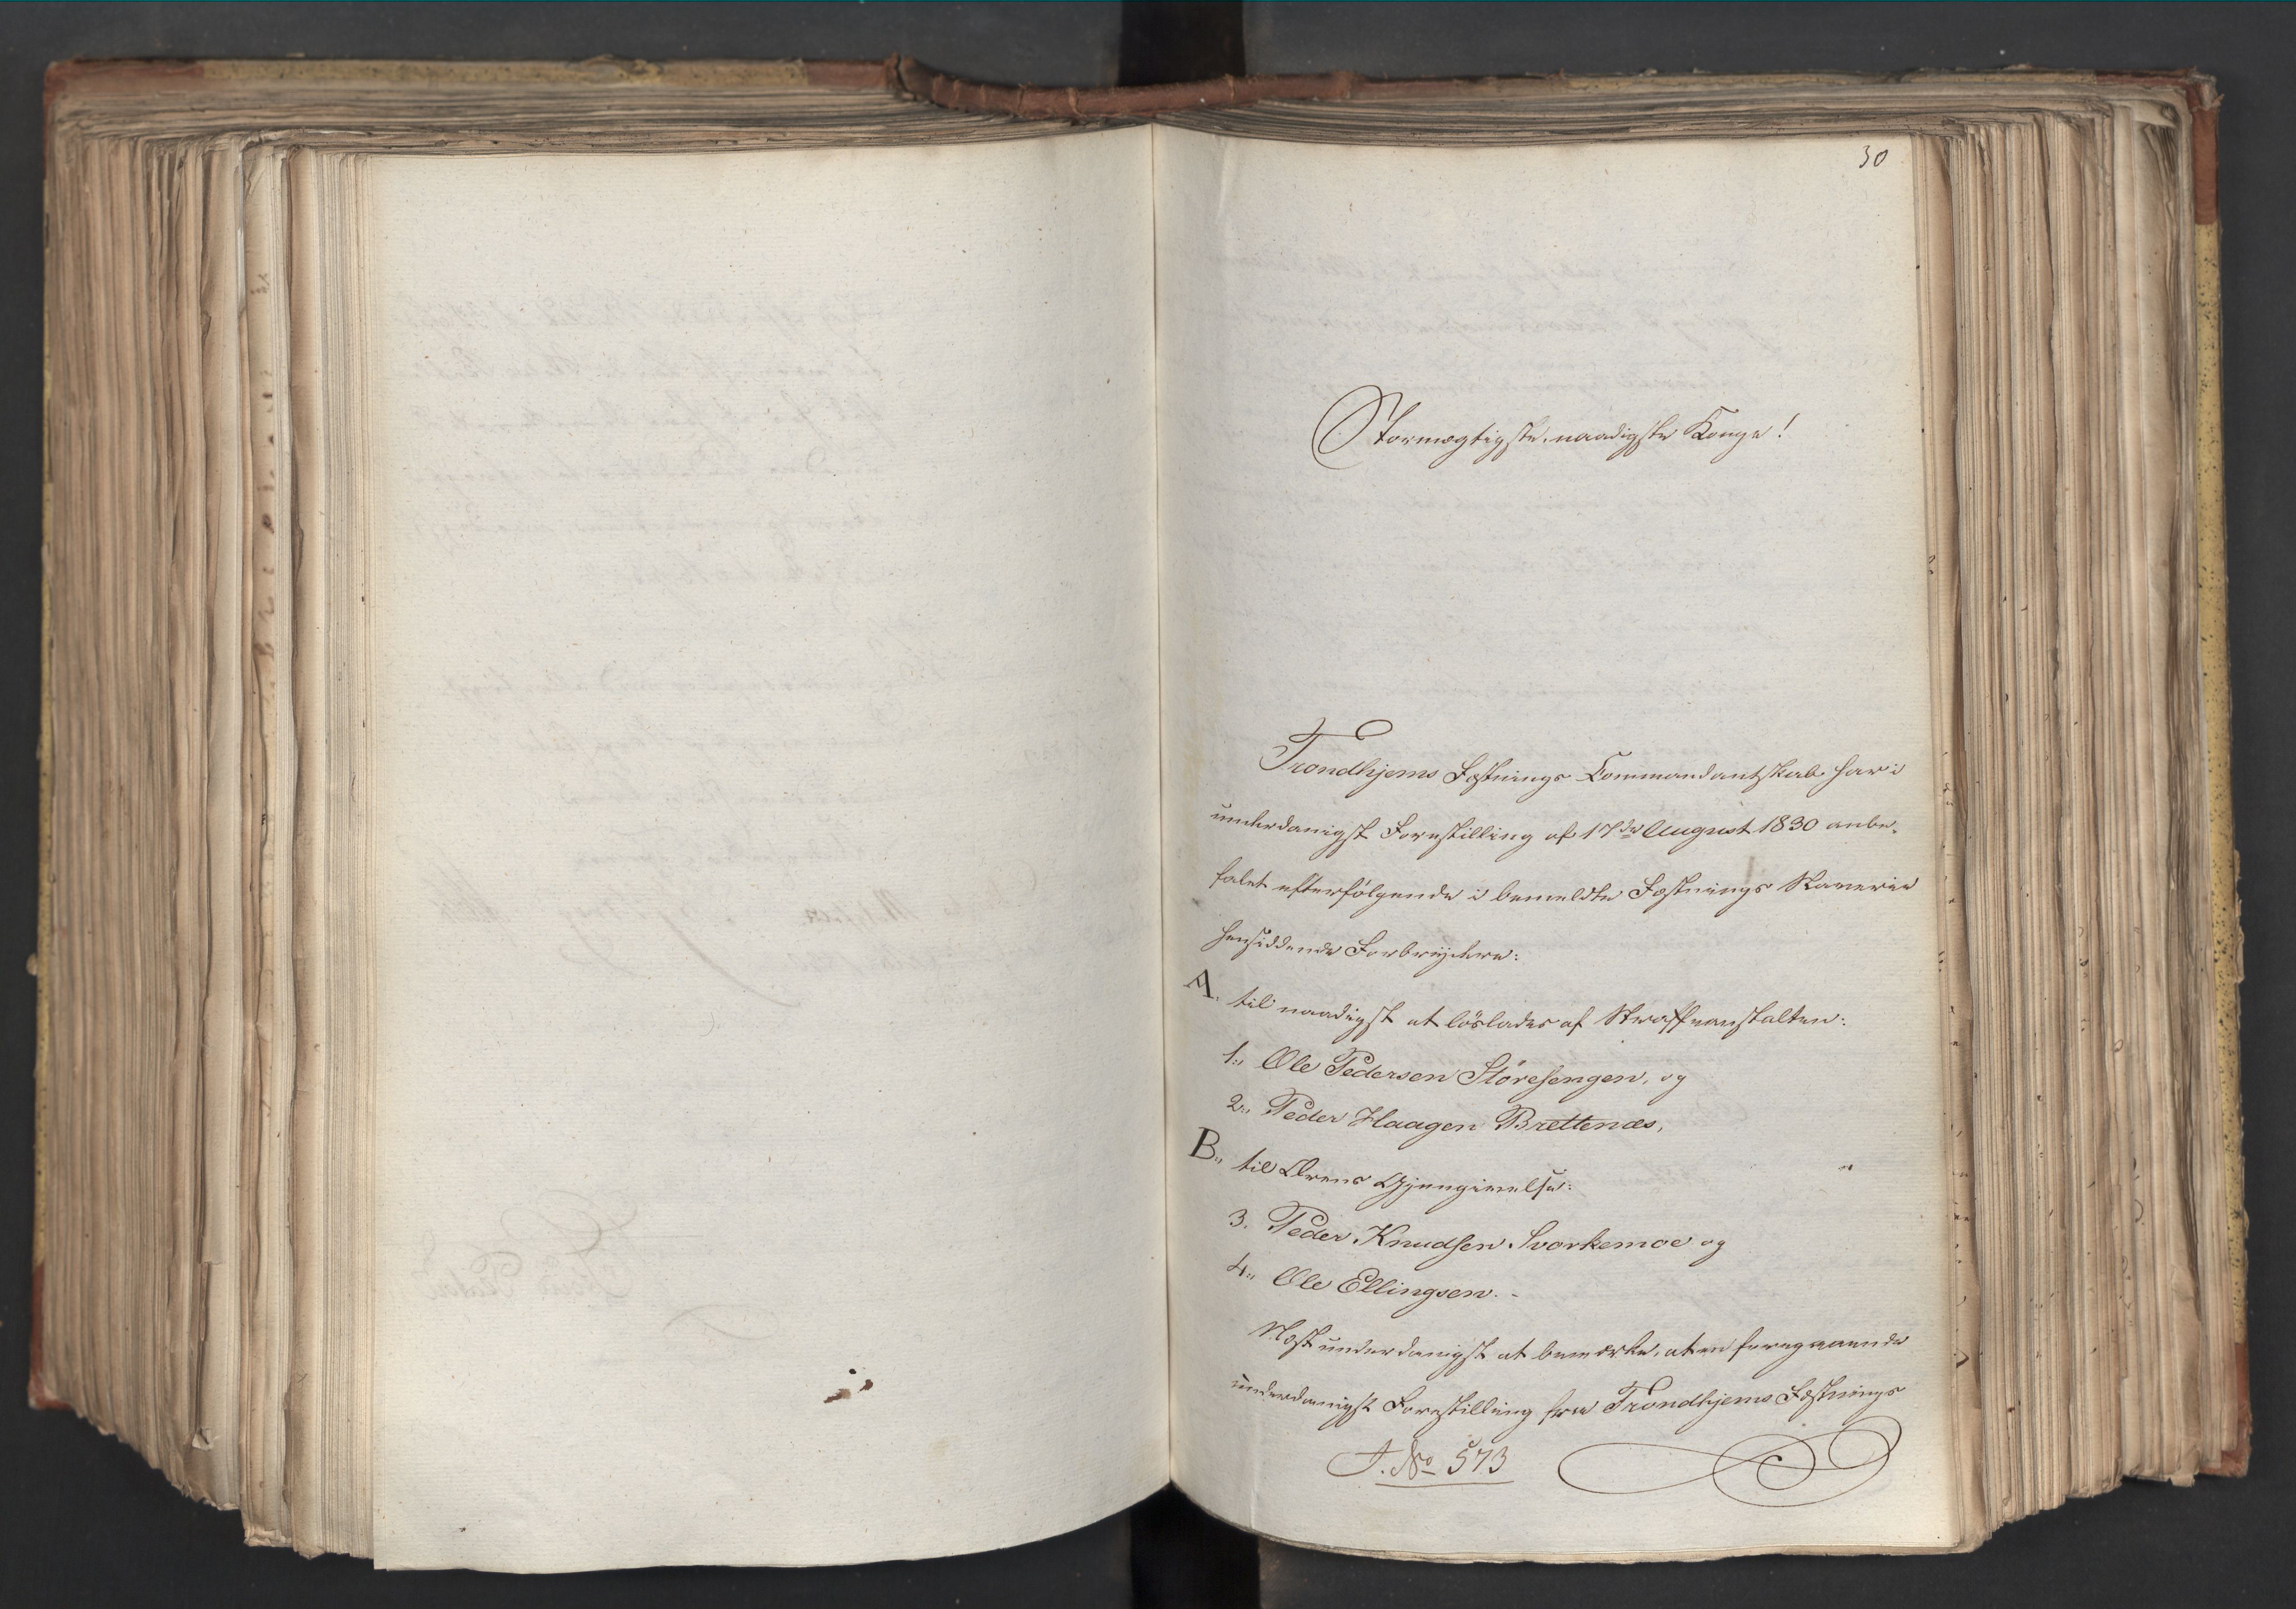 30
Stormægtigste, naadigste Konge!
Trondhjems Fæstnings Commandantskab har i
underdanigst Forestilling af 17de August 1830 anbe-
falet efterfølgende i bemeldte Fæstnings Slaverie
hensiddende Forbrydere:
A. til naadigst at løslades af Straffeanstalten:
1., Ole Pedersen Störesengen, og
2., Peder Haagen Brettenæs,
B., til Ærens Gjengivelse:
3. Peder Knudsen Svorkemoe og
4., Ole Ellingsen. -
Næst underdanigst at bemærke, at en foregaaende
underdanigst Forestilling fra Trondhjems Fæstnings
J. No 573